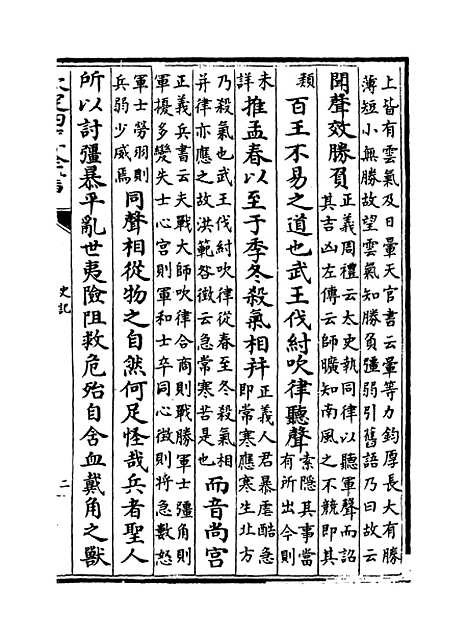 上皆有雲氣及日暈天官書云暈等力鈞厚長大有勝
薄短小無勝故望雲氣知勝負彊弱引舊語乃曰故云
聞聲效勝負
正義周禮云太史執同律以聽軍聲而詔
其吉凶左傳云師曠知南風之不競即其
類
百王不易之道也武王伐紂吹律聽聲
索隱其事當
有所出今則
未
詳
推孟春以至于季冬殺氣相并
正義人君暴虐酷急
即常寒應寒生北方
乃殺氣也武王伐紂吹律從春至冬殺氣相
并律亦應之故洪範咎徵云急常寒若是也
而音尚宫
正義兵書云夫戰大師吹律合商則戰勝軍士彊角則
軍擾多變失士心宫則軍和士卒同心徵則將急數怒
軍士勞羽則
兵弱少威焉
同聲相從物之自然何足怪哉兵者聖人
所以討彊暴平亂世夷險阻救危殆自含血戴角之獸
史記
二